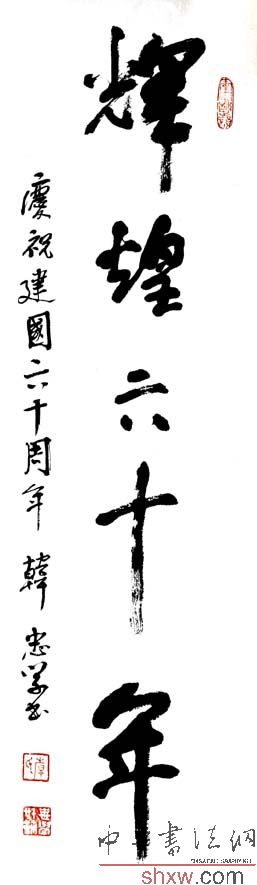 輝煌六十年
慶祝建國六十周年 韓忠学书
中国書法網
shxw.com